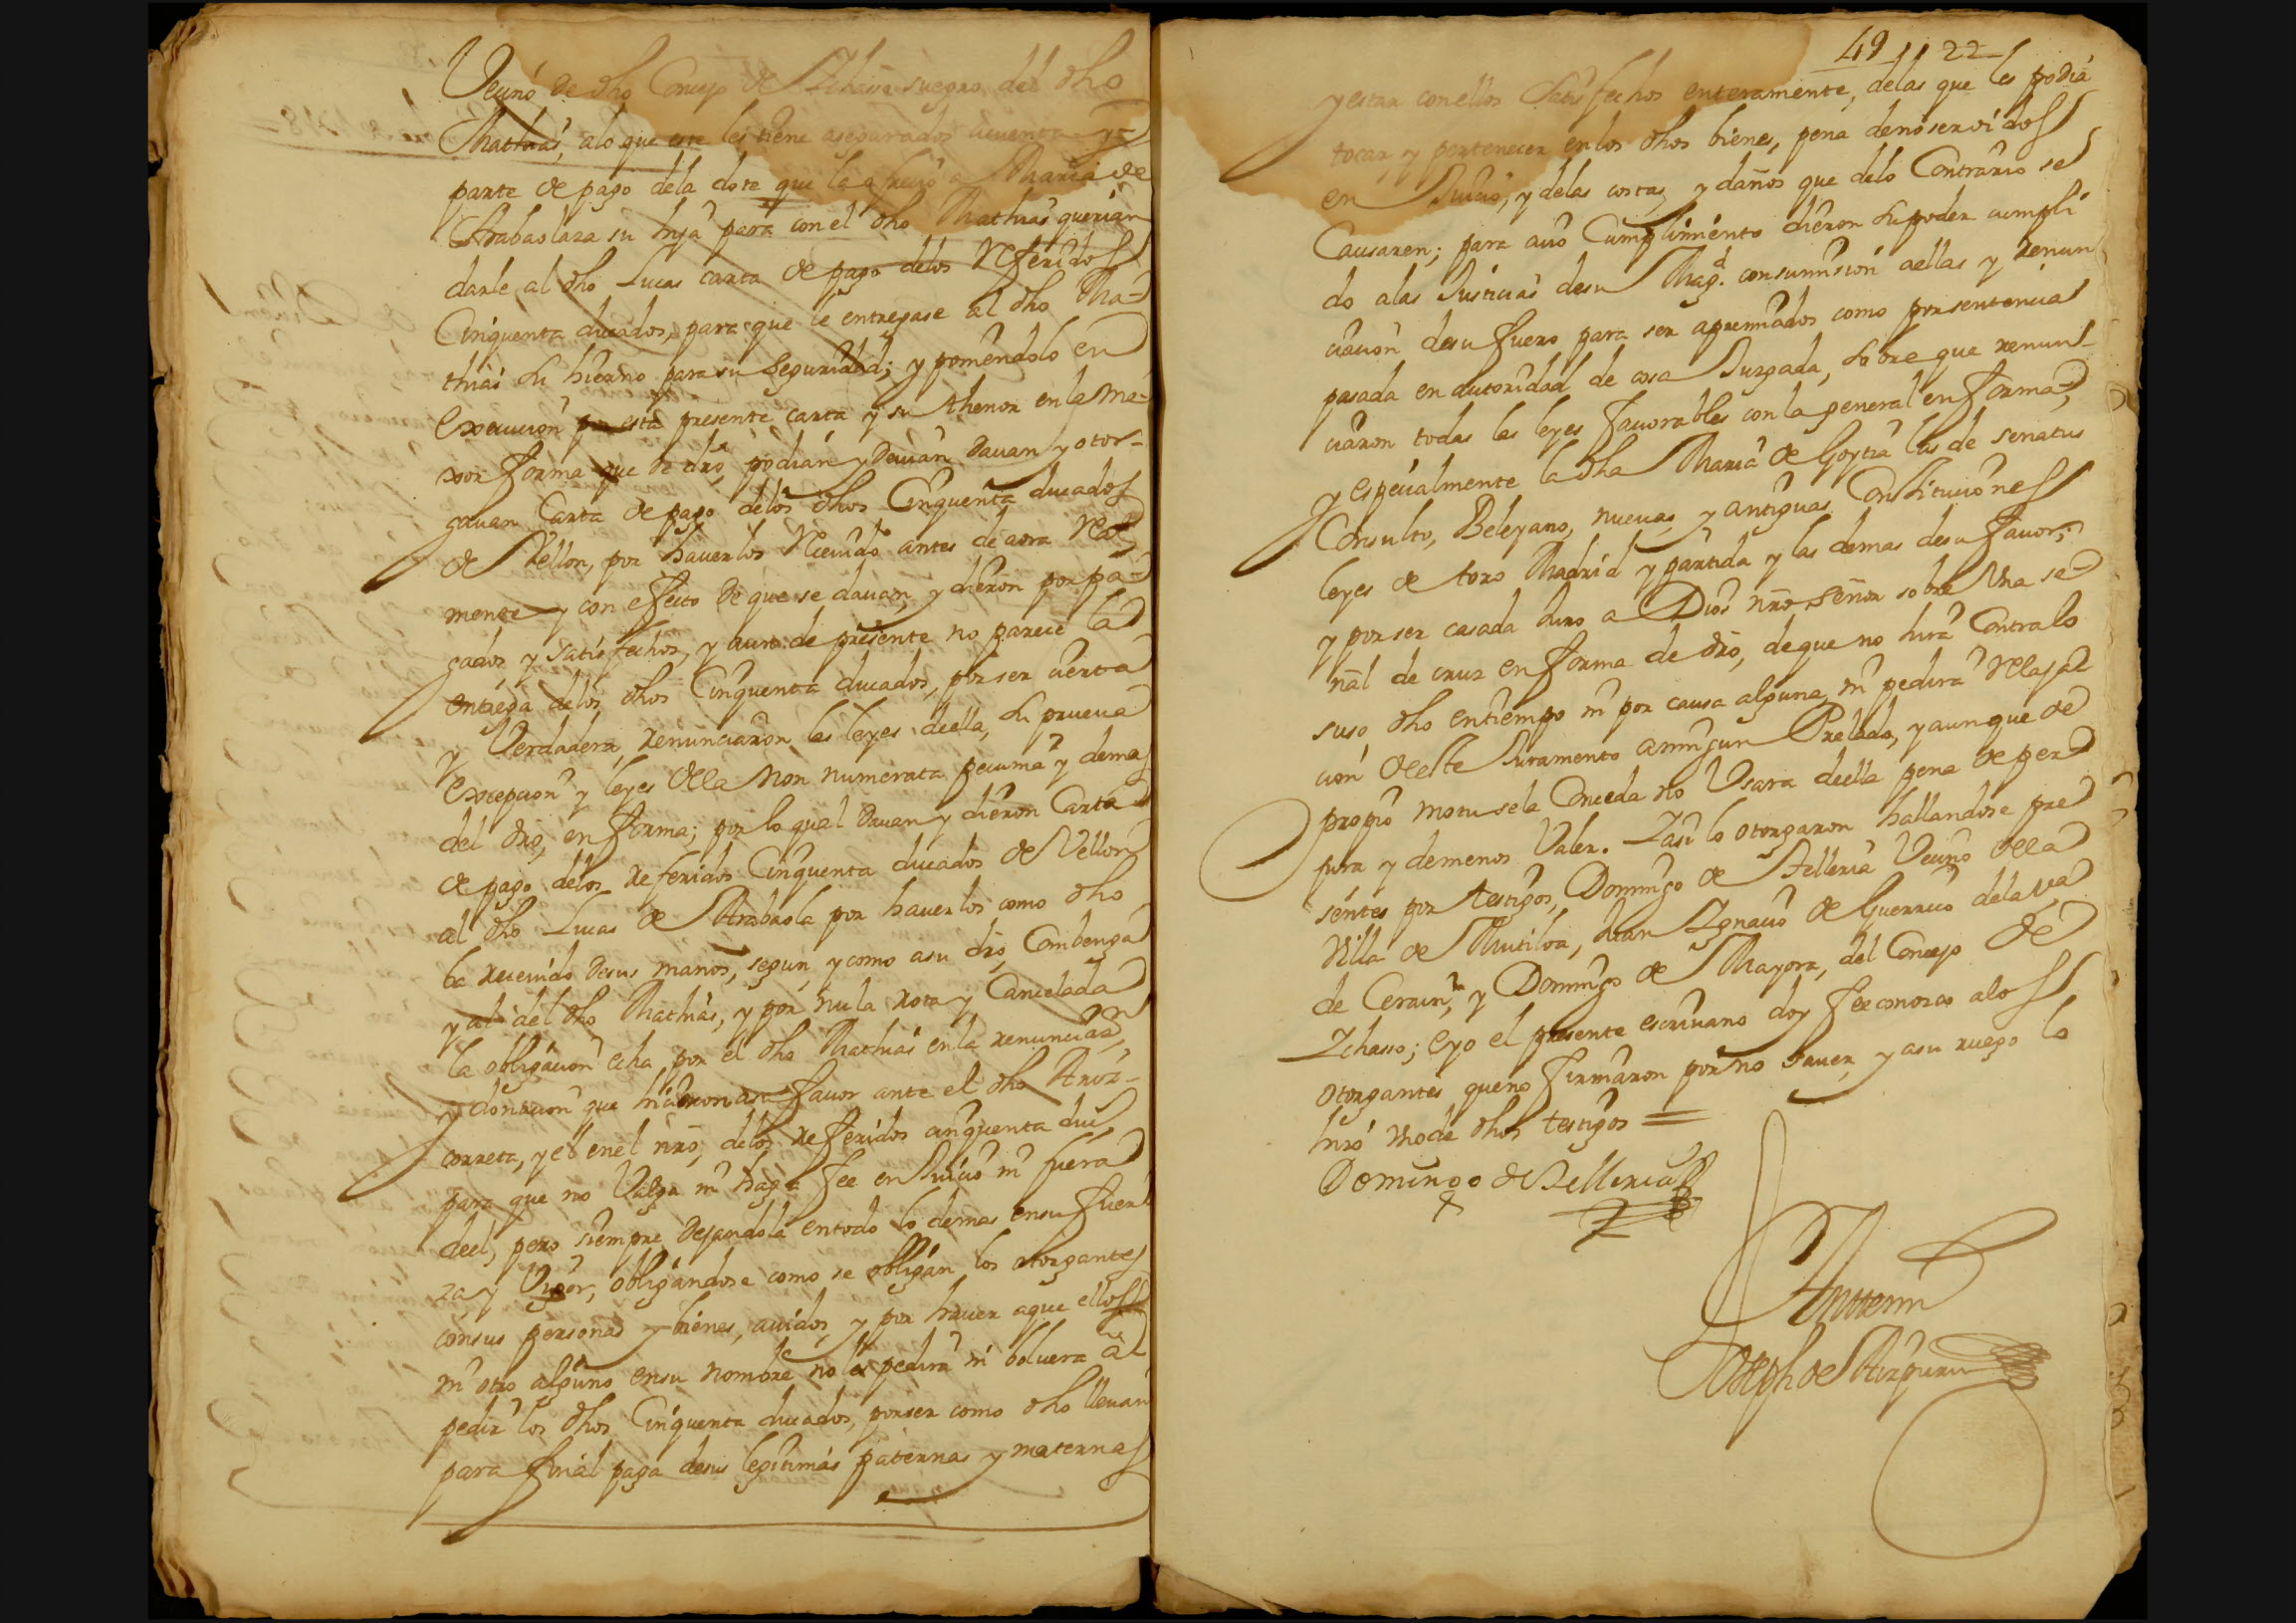 Vecino de dho Concejo de Ichasso suegro del dho
Mathias, alo que este les tiene asegurados
parte de pago dela dote que la ofrecio a Maria de
Arabaolaza su hija para con el dho Mathias querian
darle al dho Lucas carta de pago delos Referidos
Cinquenta ducados, para que le entregase al dho Ma-
thias su hierno para su Seguridad; y poniendolo en
Execucion por esta presente carta y su thenor en la me-
xor forma que de dro, podian y Devian Davan y otor-
gavan Carta de pago delos dhos Cinquenta ducados
de Vellon, por haverlos Recivido antes de aora Real
mente y con efecto de que se davan, y dieron por pa-
gados, y satisfechos, y aunq. de presente no parece la
entrega delos dhos Cinquenta ducados, por ser cierta
y Verdadera, renunciaron las leyes deella, su prueva
Excepcion y leyes dela Non numerata pecunia y demas
del dro, en forma; por lo qual Davan y dieron Carta
de pago delos referidos Cinquenta ducados de Vellon
al dho Lucas de Arabaola por haverlos como dho
ha recevido Desus manos, segun, y como asu dro, Combenga
y al del dho Mathias, y por nula rota y Cancelada
la obligacion echa por el dho Mathias en la renunciaon,
y donacion que hicieron asu favor ante el dho Aroz-
correta, y el en el nro, delos referidos cinquenta dus
para que no Valga ni haga fee en Juicio ni fuera
deel, pero siempre Dejandola en todo lo demas en su fuer
za y Vigor, obligandose como se obligan los otorgantes
con sus personas y bienes, avidos, y por haver a que ellos
ni otro alguno en su nombre no les pedira ni bolvera a
pedir los dhos Cinquenta ducados, por ser como dho llevan
para final paga desus legitimas paternas y maternas
49 22
y estar con ellos Satisfechos enteramente, delas que les podia
tocar, y pertenecer en los dhos bienes, pena de no ser oidos
en Juicio, y delas costas, y daños que delo Contrario se
Causaren; para cuio Cumplimiento dieron su poder cumpli
do alas Justicias desu Magd. con sumision aellas y renun
ciacion desu fuero para ser apremiados como por sentencia
pasada en autoridad de cosa Juzgada, sobre que renun-
ciaron todas las leyes favorables con la general en forma,
y especialmente la dha Maria de Goytia las de senatus
Consulto, Beleyano, nuevas, y antiguas Constituciones
leyes de toro Madrid y partida y las demas desu favor;
y por ser casada Juro a Dios nro Señor sobre Una se
ñal de cruz en forma de dro, de que no hira Contra lo
suso dho en tiempo ni por causa alguna, ni pedira Relaja
cion deeste Juramento aningun Prelado, y aunque de
propio motu sela Conceda no Usara deella pena de per
jura y demenos Valer. I asi lo otorgaron hallandose pre
sentes por testigos, Domingo de Telleria Vecino dela
Villa de Mutiloa, Juan Ignacio de Guerrico dela va
de Cerain, y Domingo de Mayora, del Concejo de
Ichasso; e yo el presente escrivano doy fee conozco alos
otorgantes que no firmaron por no saver, y asu ruego lo
hizo Uno de dhos testigos =
Domingo de Telleria
Antemi
Joseph de Aizpuru